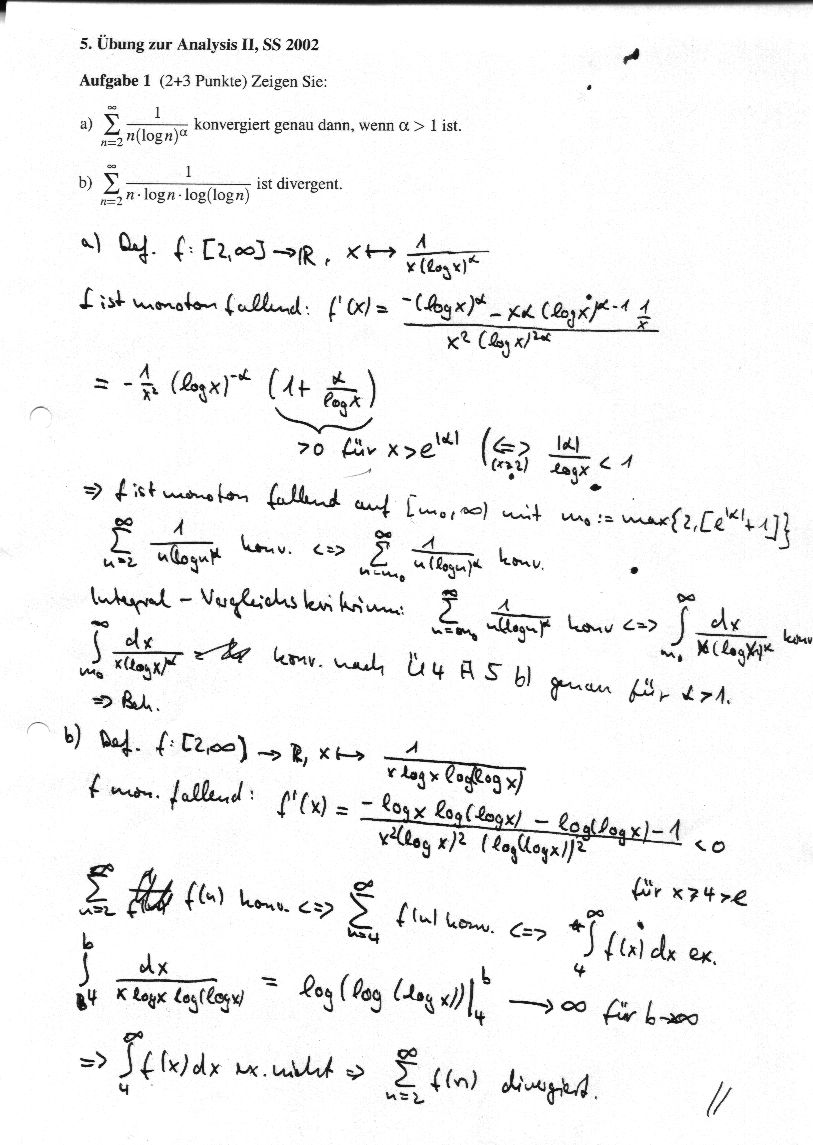 5. Übung zur Analysis II, SS 2002
Aufgabe 1 (2+3 Punkte) Zeigen Sie:
a) ∑_{n=2}^∞ 1/(n(log n)^α) konvergiert genau dann, wenn α > 1 ist.
b) ∑_{n=2}^∞ 1/(n · log n · log(log n)) ist divergent.
a) Def. f: [2,∞] → ℝ, x ↦ 1/(x(log x)^α)
f ist monoton fallend: f'(x) = (-(log x)^α - xα(log x)^{α-1} 1/x)/(x² (log x)^{2α})
= - 1/x² (log x)^{-α} (1 + α/(log x))
>0 für x > e^{|α|} (⇔ (x≥2) |α|/(log x) < 1
⇒ f ist monoton fallend auf [m₀, ∞) mit m₀ := max{2,[e^{|α|}+1]}
∑_{n=2}^∞ 1/(n(log n)^α) konv. ⇔ ∑_{n=m₀}^∞ 1/(n(log n)^α) konv.
Integral-Vergleichskriterium: ∑_{n=m₀}^∞ 1/(n(log n)^α) konv ⇔ ∫_{m₀}^∞ dx/(x(log x)^α) konv
∫_{m₀}^∞ dx/(x(log x)^α) konv. nach Ü4 A5 b) genau für α>1.
⇒ Beh.
b) Def. f: [2,∞] → ℝ, x ↦ 1/(x log x log(log x))
f mon. fallend: f'(x) = (-log x log(log x) - log(log x) - 1)/(x²(log x)² (log(log x))²) < 0
für x ≥ 4 > e
∑_{n=2}^∞ f(n) konv. ⇔ ∑_{n=4}^∞ f(n) konv. ⇔ ∫_4^∞ f(x) dx ex.
∫_4^b dx/(x log x log(log x)) = log(log(log x))|_4^b → ∞ für b→∞
⇒ ∫_4^∞ f(x) dx ex. nicht ⇒ ∑_{n=2}^∞ f(n) divergiert.
//